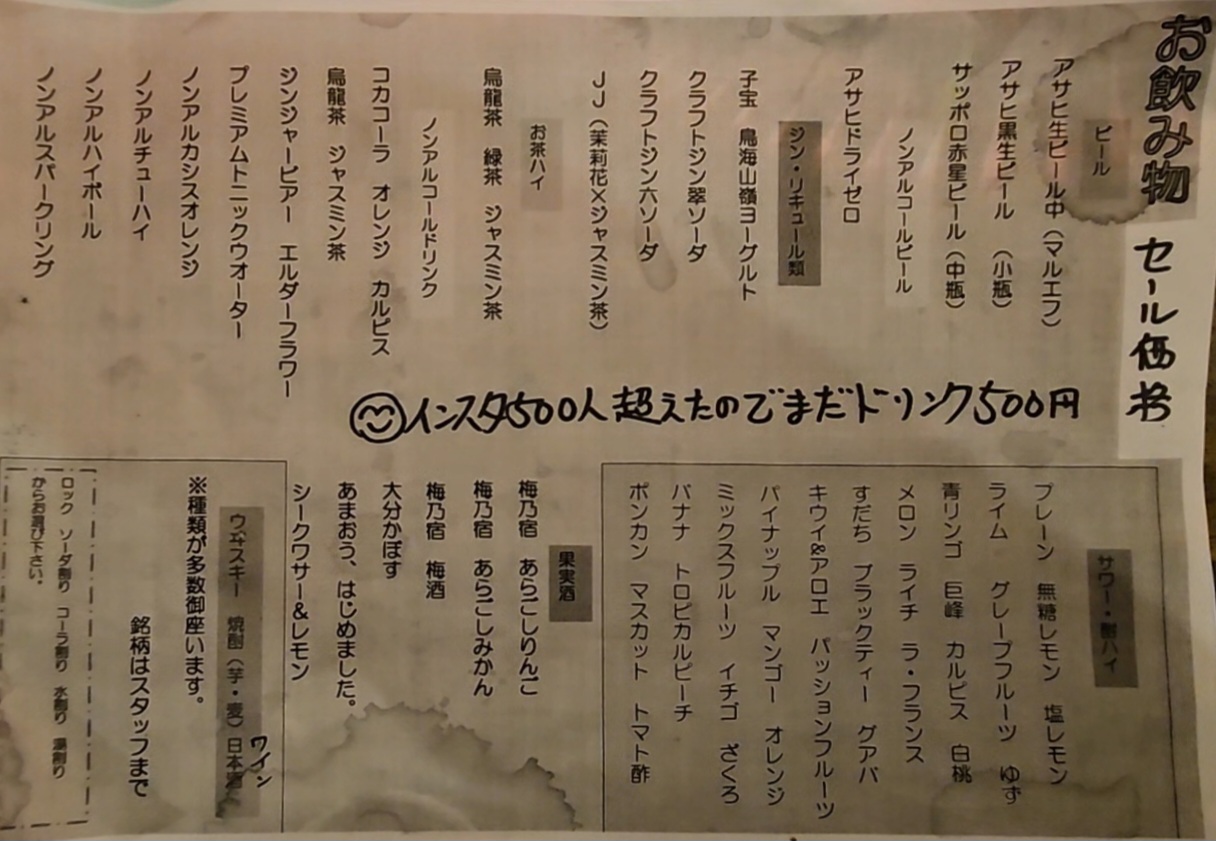 お飲み物 セール価格
ビール
アサヒ生ビール中（マルエフ）
アサヒ黒生ビール （小瓶）
サッポロ赤星ビール（中瓶）
ノンアルコールビール
アサヒドライゼロ
ジン・リキュール類
子宝 鳥海山嶺ヨーグルト
クラフトジン翠ソーダ
クラフトジン六ソーダ
JJ（茉莉花×ジャスミン茶）
お茶ハイ
烏龍茶 緑茶 ジャスミン茶
ノンアルコールドリンク
コカコーラ オレンジ カルピス
烏龍茶 ジャスミン茶
ジンジャービアー エルダーフラワー
プレミアムトニックウオーター
ノンアルカシスオレンジ
ノンアルチューハイ
ノンアルハイボール
ノンアルスパークリング
インスタ500人超えたのでまだドリンク500円
サワー・酎ハイ
プレーン 無糖レモン 塩レモン
ライム グレープフルーツ ゆず
青リンゴ 巨峰 カルピス 白桃
メロン ライチ ラ・フランス
すだち ブラックティー グアバ
キウイ&アロエ パッションフルーツ
パイナップル マンゴー オレンジ
ミックスフルーツ イチゴ ざくろ
バナナ トロピカルピーチ
ポンカン マスカット トマト酢
果実酒
梅乃宿 あらごしりんご
梅乃宿 あらごしみかん
梅乃宿 梅酒
大分かぼす
あまおう、はじめました。
シークワサー&レモン
ワイン
ウヰスキー 焼酎（芋・麦）日本酒
※種類が多数御座います。
銘柄はスタッフまで
ロック ソーダ割り コーラ割り 水割り 湯割り
からお選び下さい。